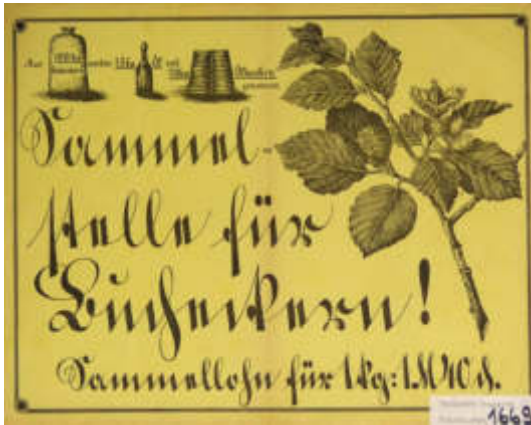 Aus 100 kg werden Öl und Kuchen gewonnen.
Sammel-
stelle für
Bucheckern!
Sammellohn für 1 kg: 1 M 10 ₰.
1669